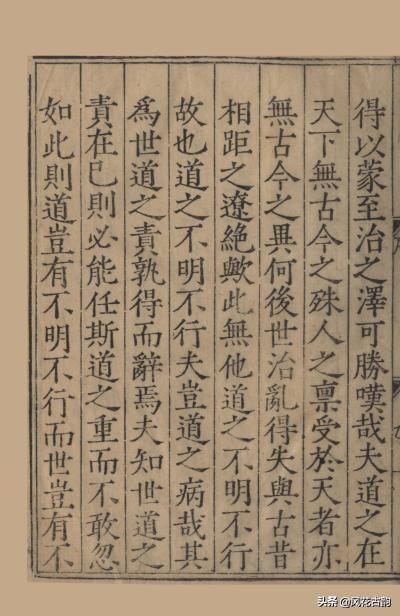 得以蒙至治之澤可勝嘆哉夫道之在
天下無古今之殊人之禀受於天者亦
無古今之異何後世治亂得失與古昔
相距之遼絶歟此無他道之不明不行
故也道之不明不行夫豈道之病哉其
爲世道之責孰得而辭焉夫知世道之
責在已則必能任斯道之重而不敢忽
如此則道豈有不明不行而世豈有不
头条 @风花古韵